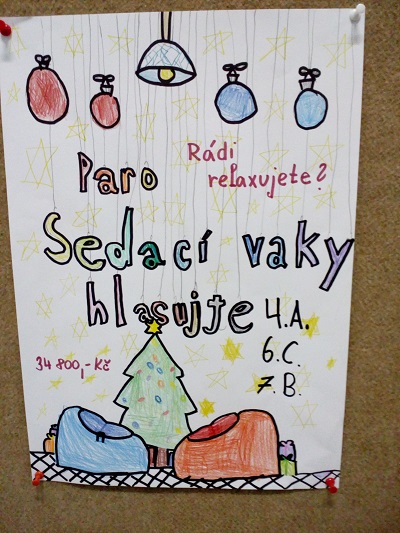 Rádi
Paro relaxujete?
Sedací vaky
hlasujte 4.A.
6.C.
34 800,- Kč
7.B.